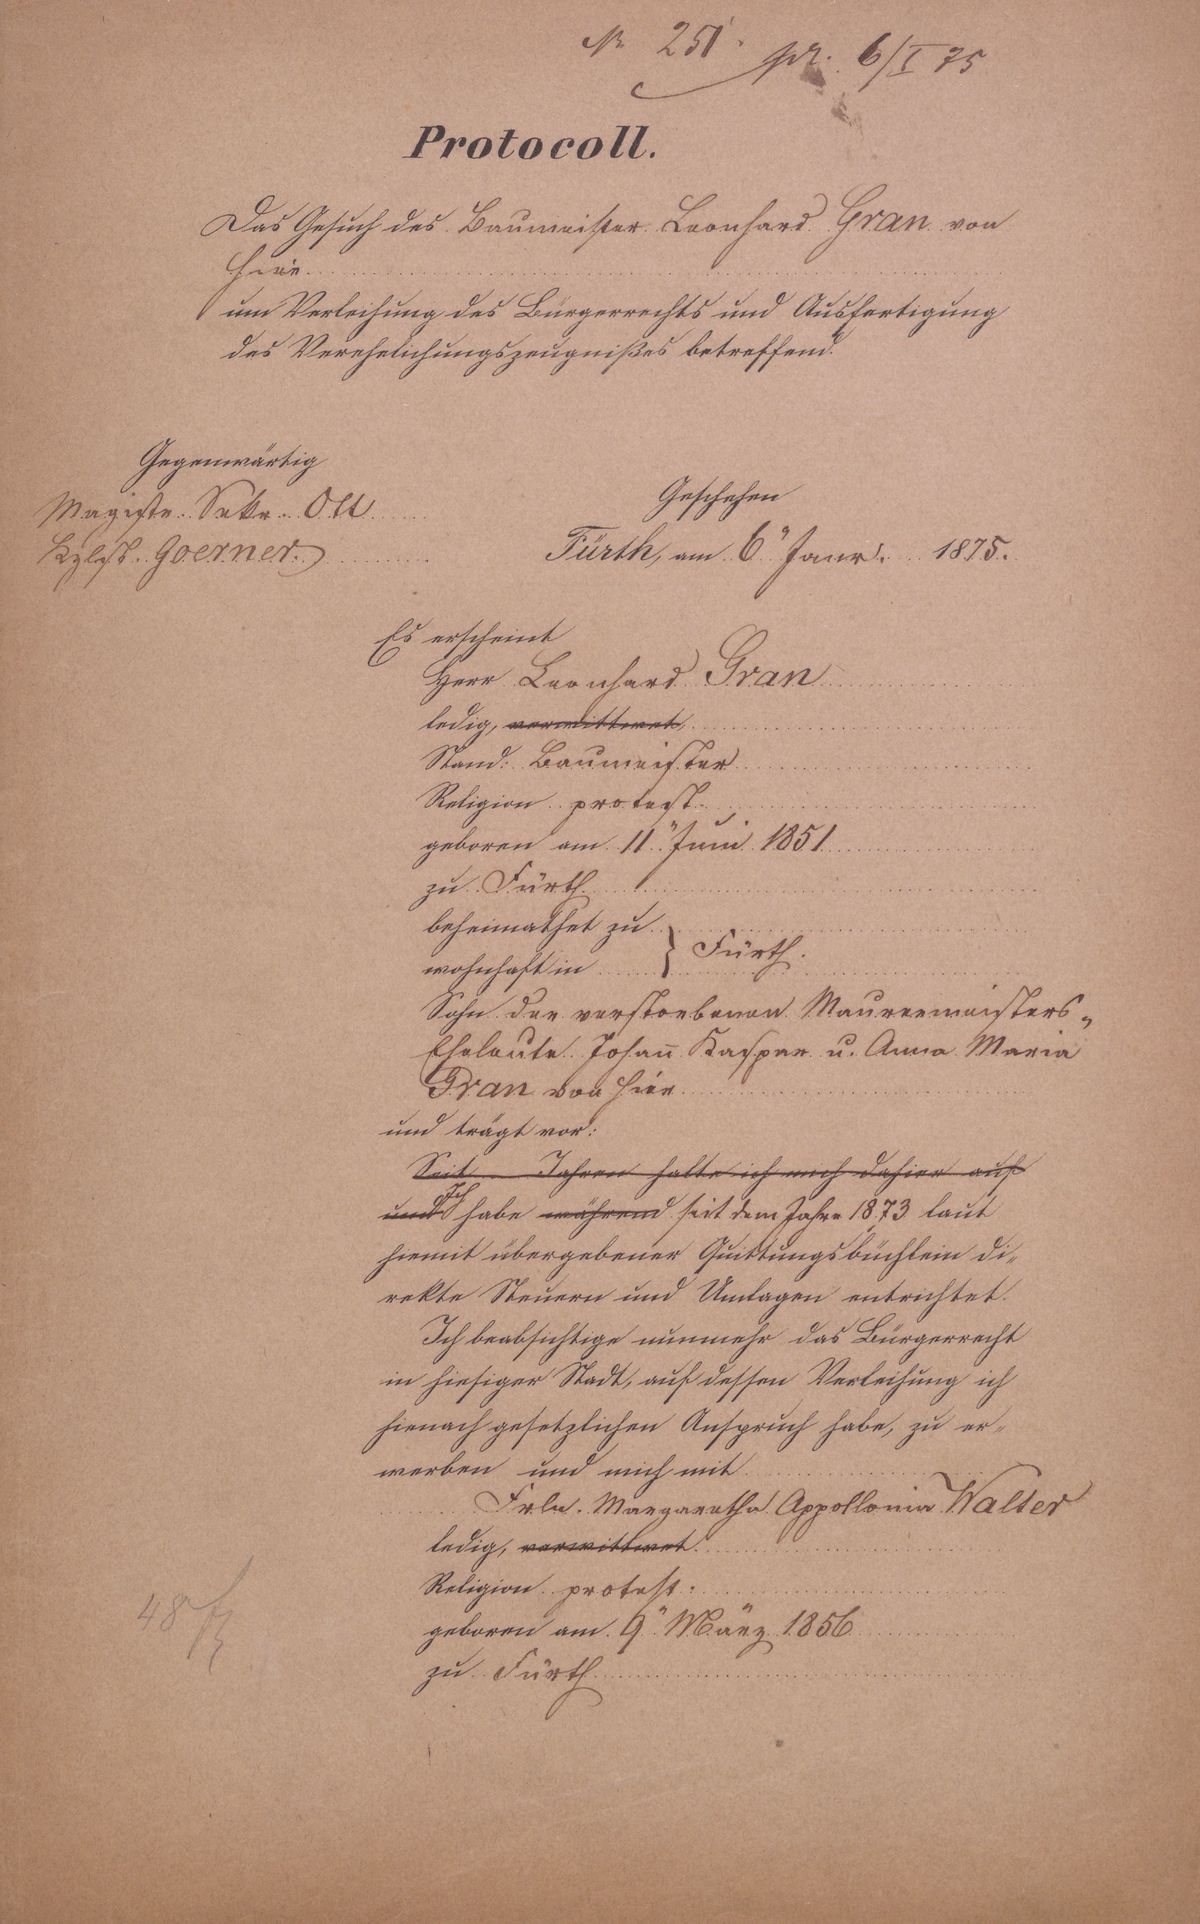 Nr 251. pr. 6/I 75
Protocoll.
Das Gesuch des Baumeister Leonhard Gran von
hier
um Verleihung des Bürgerrechts und Ausfertigung
des Verehelichungszeugnißes betreffend.
Gegenwärtig
Magistr. Sekr. Ott
Goerner.
Geschehen
Fürth, am 6" Janr. 1875.
Es erscheint
Herr Leonhard Gran
ledig, verwittwet,
Stand: Baumeister
Religion protest.
geboren am 11" Juni 1851
zu Fürth
beheimathet zu
wohnhaft in } Fürth.
Sohn der verstorbenen Maurermeisters-
Eheleute Johann Kaspar u. Anna Maria
Gran von hier
und trägt vor:
Seit Jahren halte ich mich dahier auf
und Ich habe während seit dem Jahre 1873 laut
hiemit übergebener Quittungsbüchlein di-
rekte Steuern und Umlagen entrichtet.
Ich beabsichtige nunmehr das Bürgerrecht
in hiesiger Stadt, auf dessen Verleihung ich
hienach gesetzlichen Anspruch habe, zu er-
werben und mich mit
Frln. Margaretha Appollonia Walter
ledig, verwittwet
Religion protest.
geboren am 9" März 1856
zu Fürth
48